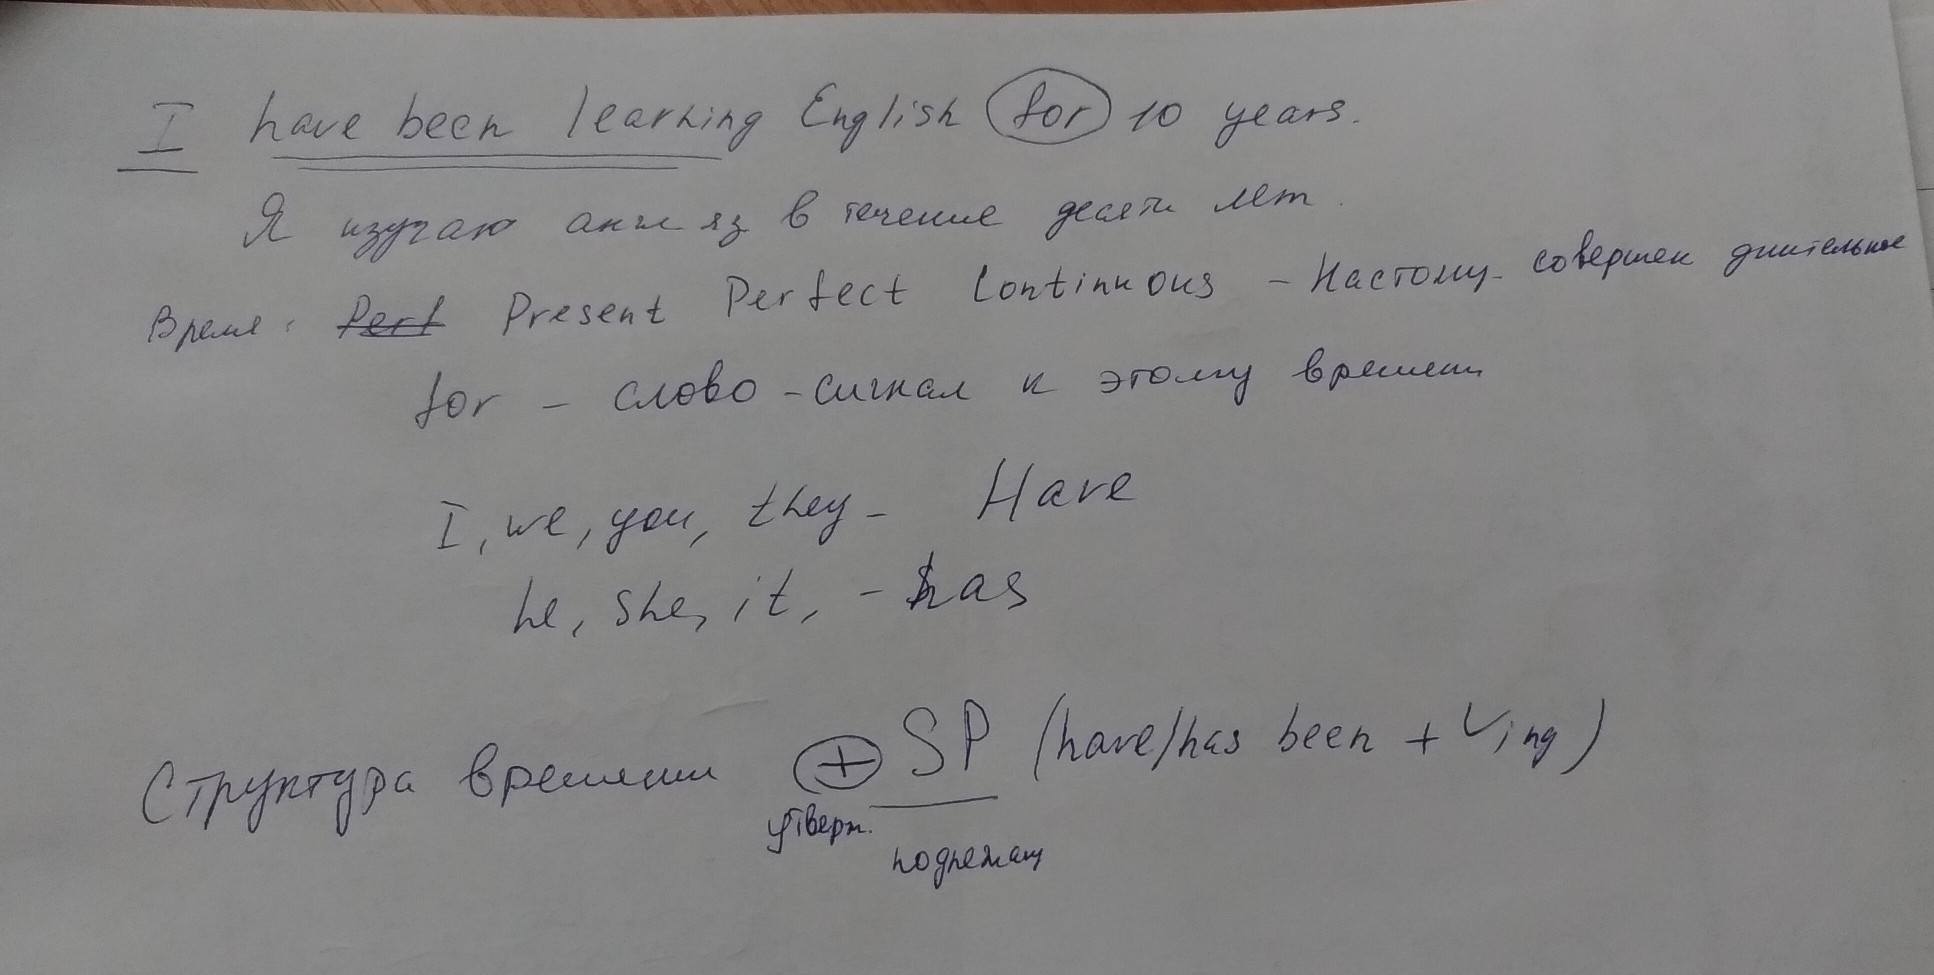 I have been learning English for 10 years.
Я изучаю англ яз в течение десяти лет.
Время: Perf Present Perfect Continuous - Настоящ. совершен длительное
for - слово - сигнал к этому времени
I, we, you, they - Have
he, she, it, - has
Структура времени + SP (have/has been + Ving)
утверж.
подлежащ